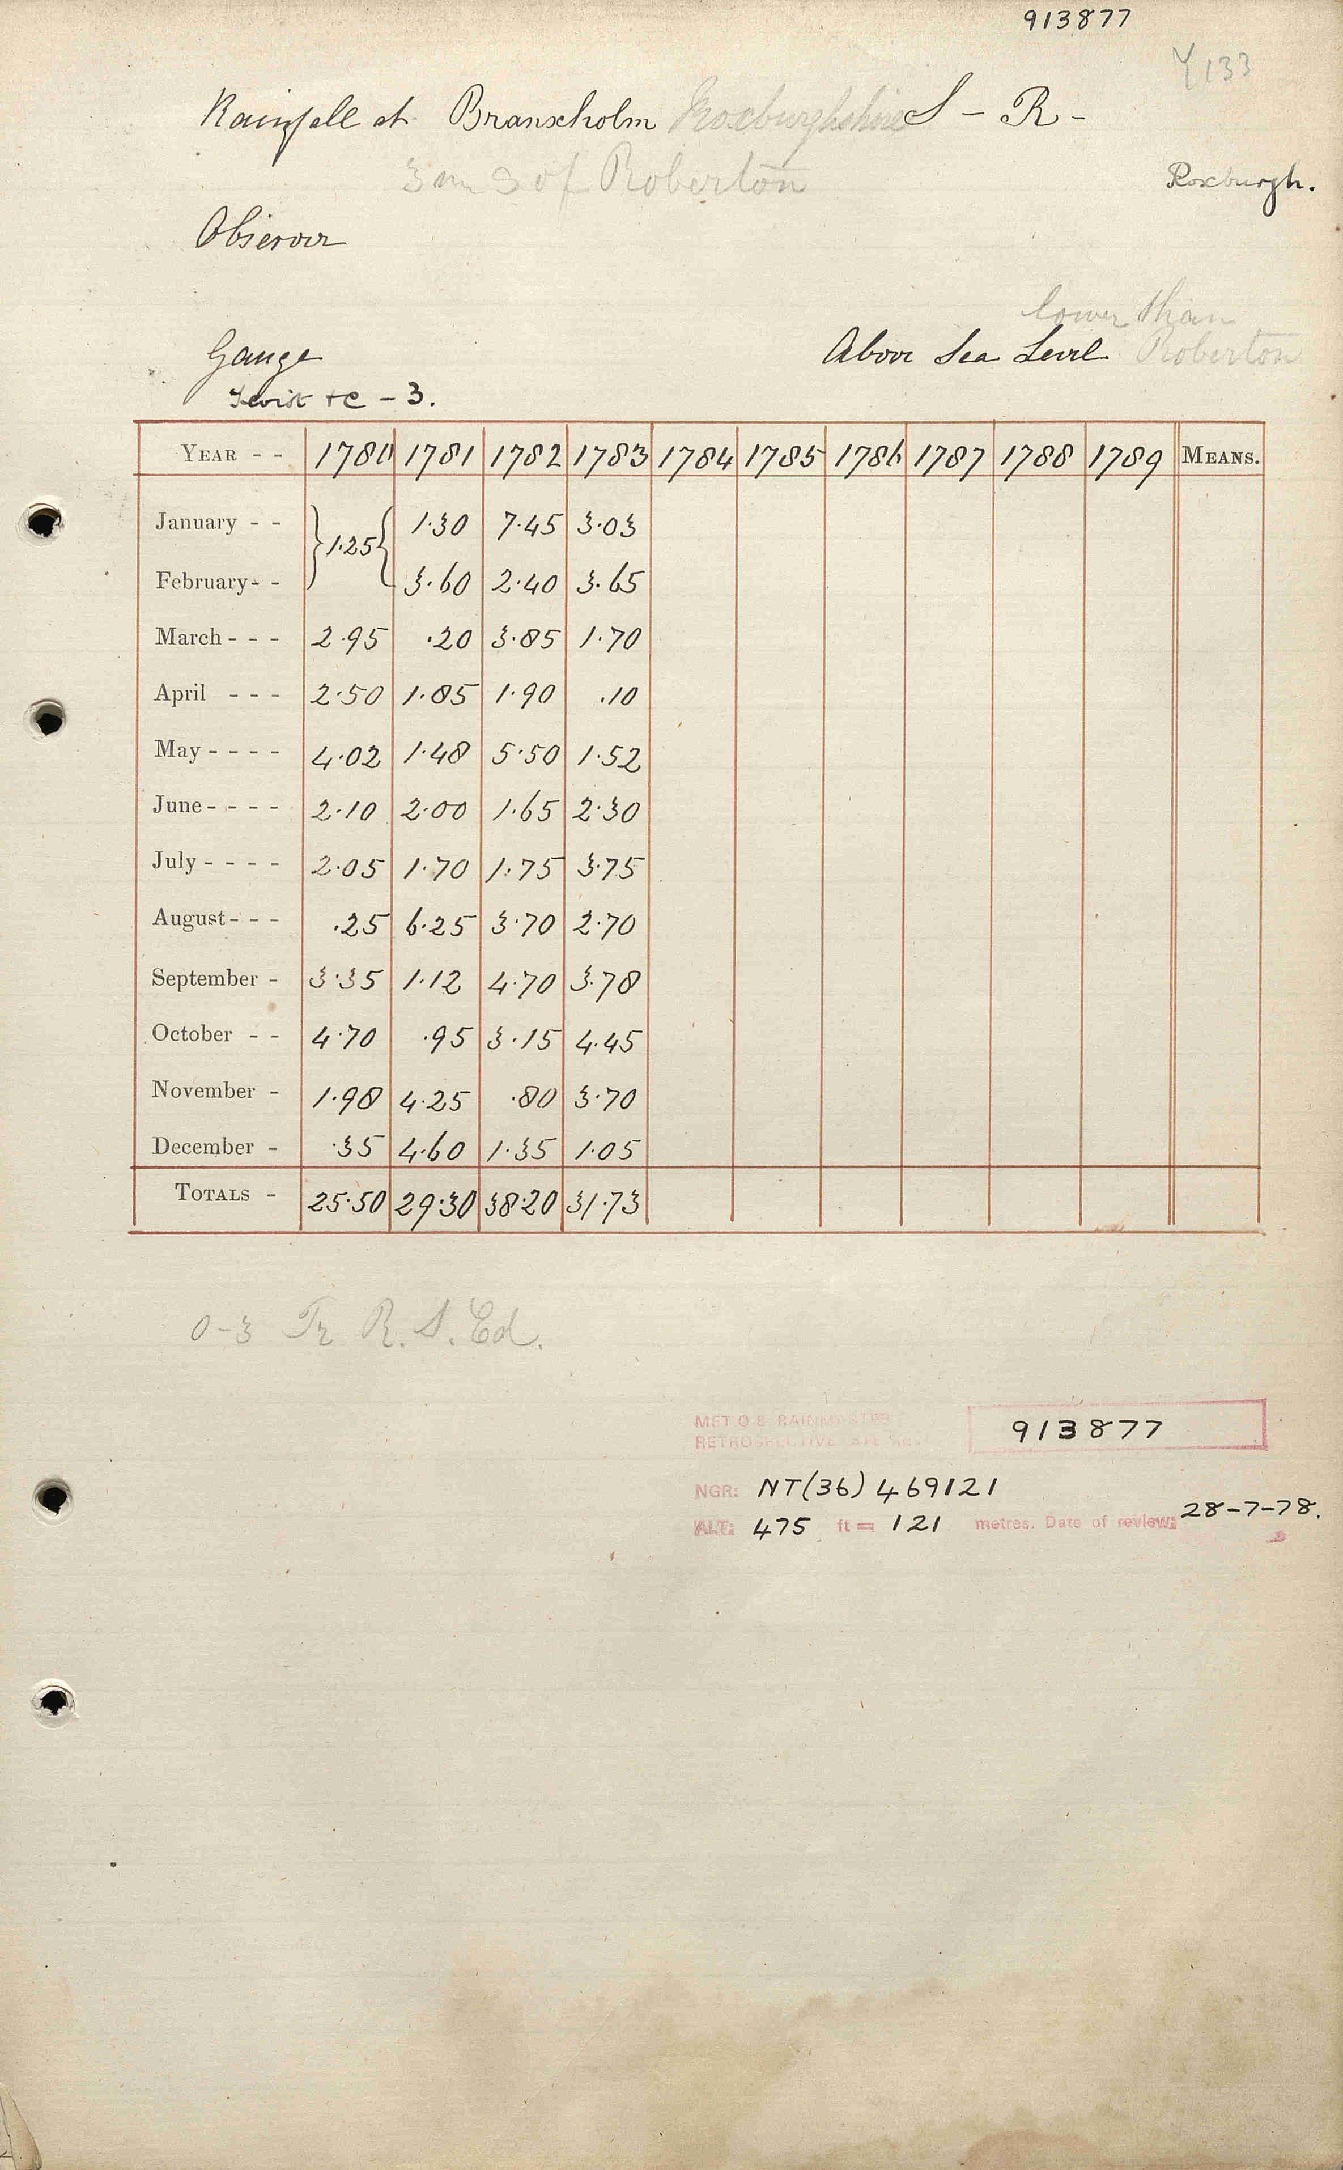 913877
Y133
Rainfall at Branxholm Roxburghshire S - R -
3 m of Roberton
Roxburgh.
Observer
lower than
Gauge Above Sea Level Roberton
+c - 3.
YEAR - - 1780 1781 1782 1783 1784 1785 1786 1787 1788 1789 MEANS.
January - - } 1.25 { 1.30 7.45 3.03
February - - 3.60 2.40 3.65
March - - - 2.95 .20 3.85 1.70
April - - - 2.50 1.85 1.90 .10
May - - - - 4.02 1.48 5.50 1.52
June - - - - 2.10 2.00 1.65 2.30
July - - - - 2.05 1.70 1.75 3.75
August - - - .25 6.25 3.70 2.70
September - 3.35 1.12 4.70 3.78
October - - 4.70 .95 3.15 4.45
November - 1.98 4.25 .80 3.70
December - .35 4.60 1.35 1.05
TOTALS - 25.50 29.30 38.20 31.73
0-3 Tr. R. S. Ed.
MET O 8 RAINMASTER
RETROSPECTIVE
913877
NGR: NT(36) 469121
ALT: 475 ft = 121 metres. Date of review: 28-7-78.